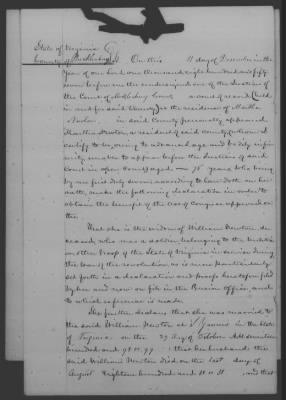 State of Virginia
County of Mecklenburg On this 11 day of December in the
Year of our Lord one thousand eight hundred and fifty
seven before me the undersigned one of the Justices of
the Court of Mecklenburg County a court of record (held
in and for said County) at the residence of Martha
Newton in said County personally appeared
Martha Newton, a resident of said county, (whom I
certify to be owing to advanced age and bodily infir
mity unable to appear before the Justices of said
Court in open Court) aged 78 years who being
by me first duly sworn according to law doth on her
oath, make the following declaration in order to
obtain the benefit of the Act of Congress approved on
the
That she is the widow of William Newton de
ceased, who was a soldier belonging to the
or other Troop of the State of Virginia in service during
the war of the revolution, as is more particularly
set forth in a declaration and proofs heretofore filed
by her and now on file in the Pension office, and
to which reference is made
She further declares that she was married to
the said William Newton at in the State
of Virginia on the 29 day of October AD seventeen
hundred and ; that her husband the
said William Newton died on the last day of
August Eighteen hundred and ; and that